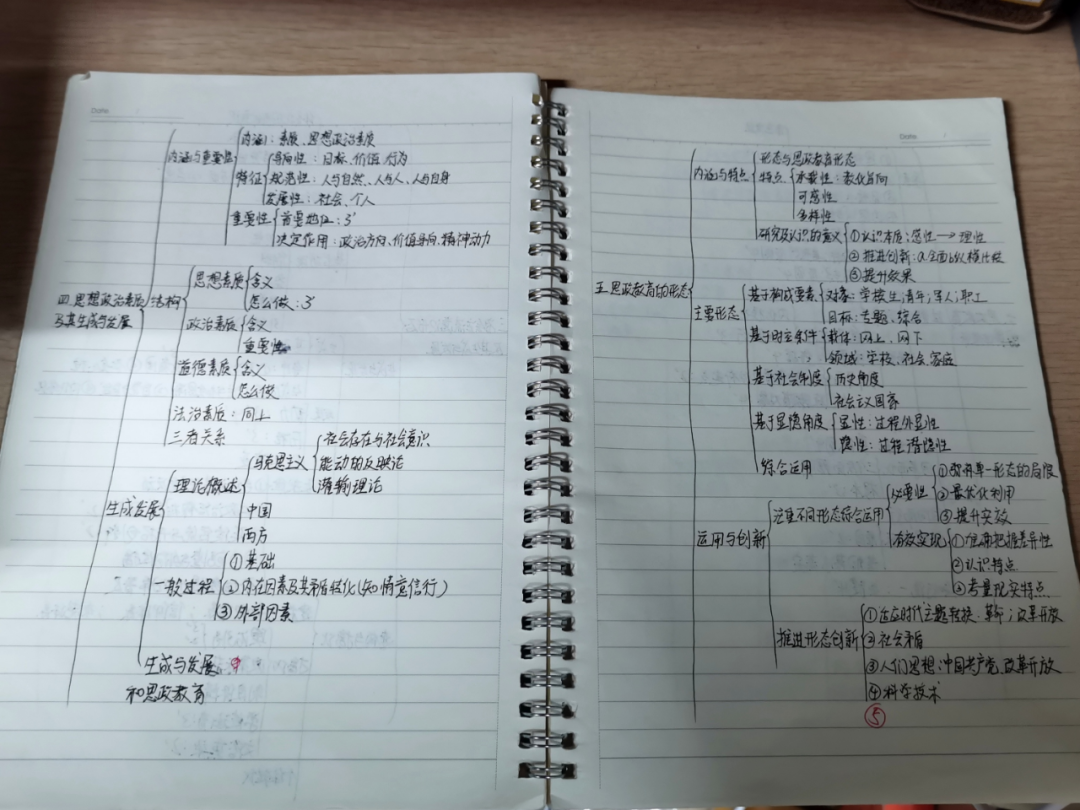 Date
内涵与重要性
内涵：素质、思想政治素质
特征
导向性：目标、价值、行为
规范性：人与自然、人与人、人与自身
发展性：社会、个人
重要性
首要地位：3'
决定作用：政治方向、价值导向、精神动力
四.思想政治素质
及其生成与发展
结构
思想素质
含义
怎么做：3'
政治素质
含义
重要性
道德素质
含义
怎么做
法治素质：同上
三者关系
生成发展
理论概述
马克思主义
社会存在与社会意识
能动的反映论
灌输理论
中国
西方
一般过程
①基础
②内在因素及其矛盾转化(知情意信行)
③外部因素
生成与发展
和思政教育
Date
五.思政教育的形态
内涵与特点
形态与思政教育形态
特点
承载性：教化导向
可感性
多样性
研究及认识的意义
①认识本质：感性→理性
②推进创新：a全面b纵横比较
③提升效果
主要形态
基于构成要素
对象：学校生；青年；军人；职工
目标：专题、综合
载体：网上、网下
领域：学校、社会、家庭
基于社会制度
历史角度
社会主义国家
基于显隐角度
显性：过程外显性
隐性：过程潜隐性
综合运用
运用与创新
注重不同形态综合运用
必要性
单一形态的局限
②最优化利用
③提升实效
有效实现
①准确把握差异性
②认识特点
③考量现实特点
推进形态创新
①适应时代主题转换、革新；改革开放
②社会矛盾
③人们思想：中国共产党、改革开放
④科学技术
⑤